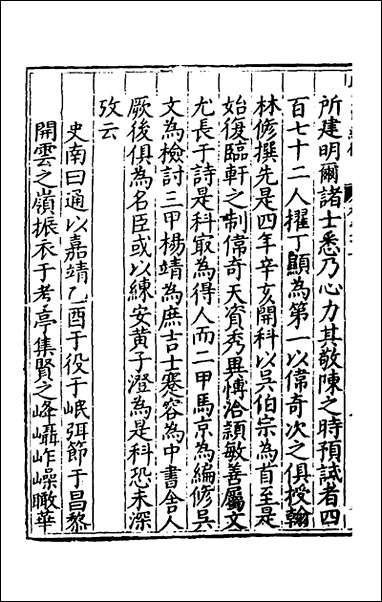 所建明爾諸士悉乃心力其敬陳之時預試者四
百七十二人擢丁顯為第一以偉奇次之俱授翰
林修撰先是四年辛亥開科以吳伯宗為首至是
始復臨軒之制偉奇天資秀異博洽頴敏善屬文
尤長于詩是科㝡為得人而二甲馬京為編修吳
文為檢討三甲楊靖為庶吉士蹇容為中書舍人
厥後俱為名臣或以練安黃子澄為是科恐未深
攷云
史南曰通以嘉靖乙酉于役于岷弭節于昌黎
開雲之嶺振衣于考亭集賢之峰嵓岞嶫瞰華